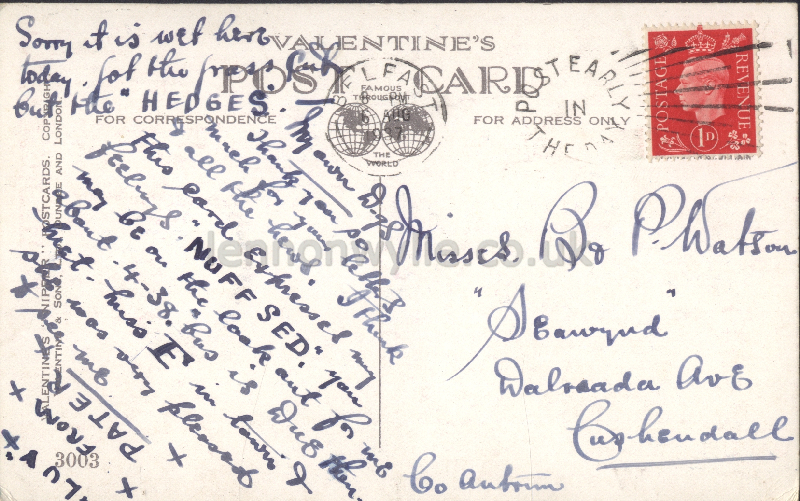 Sorry it is wet here
today. for the press. Cut
but the "HEDGES.
VALENTINE'S
POST CARD
FOR CORRESPONDENCE
FOR ADDRESS ONLY
BELFAST
FAMOUS
THROUGHOUT
6 AUG
1937
THE
WORLD
POST EARLY
IN
THE DAY
POSTAGE
REVENUE
1D
My own Dogs
thank you so
much for your letters
& all the news. I think
this card expresses my
feelings "NUFF SED." you
may be on the look out for me
about 4-38. bus is Due then.
in town &
was very pleased
me
PATE
FROM
x x x x
Misses. Bo P. Watson
"Seawynd"
Dalriada Ave
Cushendall
Co Antrim
VALENTINE'S "SNIPPER" POSTCARDS. COPYRIGHT
VALENTINE & SONS, LTD. DUNDEE AND LONDON
3003
lennonwylie.co.uk